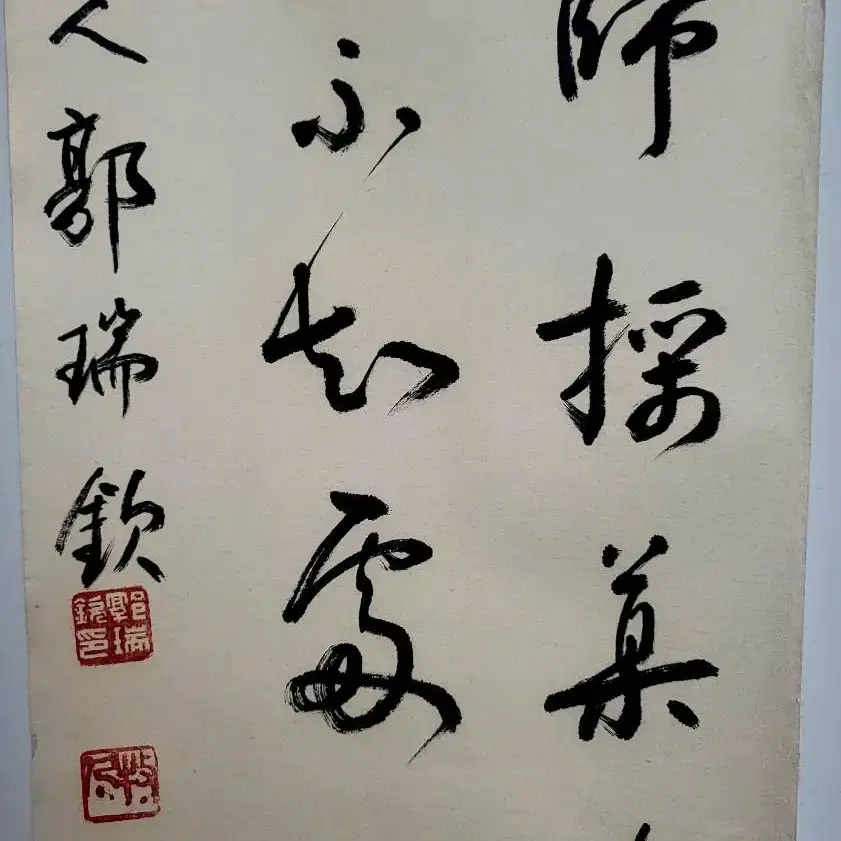 師採藥
不知處
人郭瑞欽
郭瑞欽印